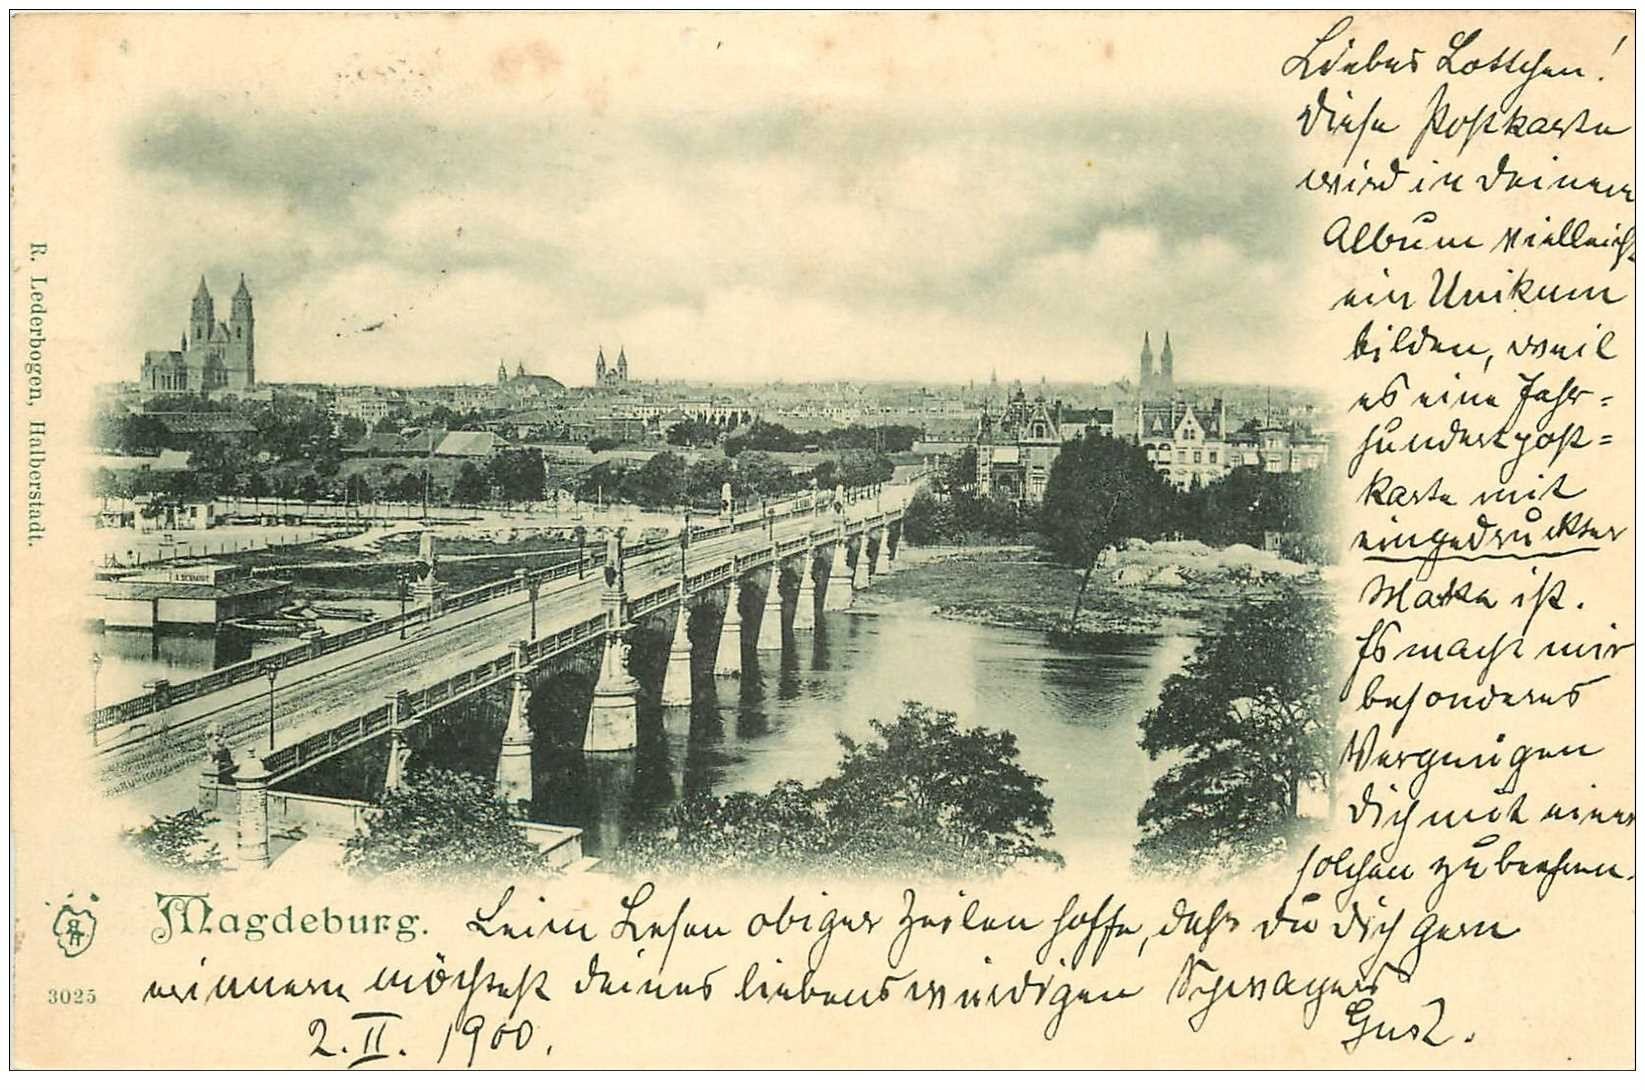 Liebes Lottchen!
Diese Postkarte
wird in Deinem
Album vielleicht
ein Unikum
bilden, weil
es eine Jahr=
hundertpost=
karte mit
eingedruckter
Marke ist.
Es macht mir
besonderes
Vergnügen
Dich mit einer
solchen zu beehren.
R. Lederbogen, Halberstadt.
Magdeburg. Beim Lesen obiger Zeilen hoffe, daß Du Dich gern
erinnern möchtest Deines liebenswürdigen Schwagers
3025
2. II. 1900.